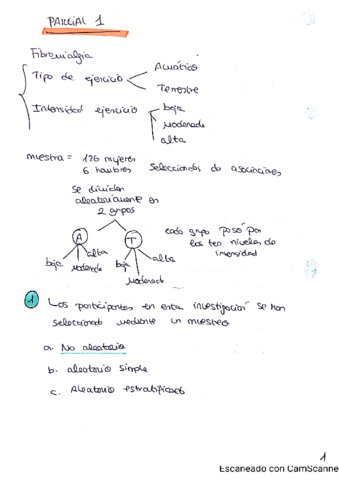 PARCIAL 1
Fibromialgia
Tipo de ejercicio
Acuático
Terrestre
Intensidad ejercicio
baja
moderado
alta
muestra = 126 mujeres
6 hombres
seleccionados de asociaciones
se dividen
aleatoriamente en
2 grupos
A
T
cada grupo pasó por
los tres niveles de
intensidad
baja
moderado
alta
baja
moderado
alta
1 Los participantes en esta investigación se han
seleccionado mediante un muestreo
a. No aleatorio
b. aleatorio simple
c. Aleatorio estratificado
1
Escaneado con CamScanne